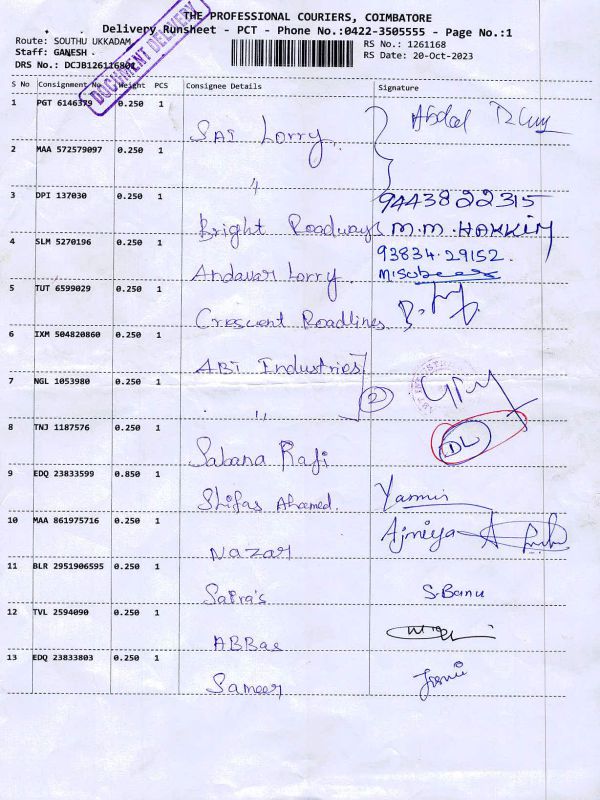 THE PROFESSIONAL COURIERS, COIMBATORE
Delivery Runsheet - PCT - Phone No.:0422-3505555 - Page No.:1
Route: SOUTHU UKKADAM
Staff: GANESH
DRS No.: DCJB126116801
RS No.: 1261168
RS Date: 20-Oct-2023
DOCUMENT DELIVERY
S No Consignment No Weight PCS Consignee Details Signature
1 PGT 6146379 0.250 1 SAI Lorry. Abdul
2 MAA 572579097 0.250 1 "
9443822315
3 DPI 137030 0.250 1 Bright Roadways M.M.HAKKIM
4 SLM 5270196 0.250 1 Andavar Lorry. 93834.29152.
5 TUT 6599029 0.250 1 Crescent Roadlines
6 IXM 504820860 0.250 1 ABI Industries
7 NGL 1053980 0.250 1 " 2
8 TNJ 1187576 0.250 1 Sabana Rafi DL
9 EDQ 23833599 0.850 1 Shifas Ahamed. Yasmin
10 MAA 861975716 0.250 1 Nazar Ajmiya
11 BLR 2951906595 0.250 1 Safra's S.Banu
12 TVL 2594090 0.250 1 ABBas
13 EDQ 23833803 0.250 1 Sameer